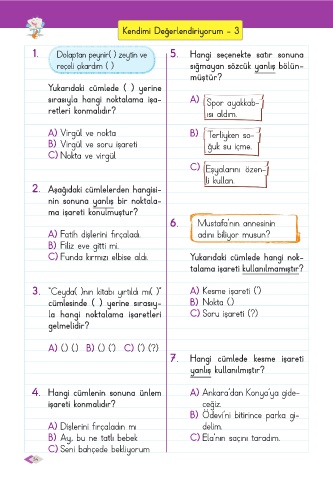 Kendimi Değerlendiriyorum - 3
1.
Dolaptan peynir( ) zeytin ve
reçeli çıkardım ( )
Yukarıdaki cümlede ( ) yerine
sırasıyla hangi noktalama işa-
retleri konmalıdır?
A) Virgül ve nokta
B) Virgül ve soru işareti
C) Nokta ve virgül
2. Aşağıdaki cümlelerden hangisi-
nin sonuna yanlış bir noktala-
ma işareti konulmuştur?
A) Fatih dişlerini fırçaladı.
B) Filiz eve gitti mi.
C) Funda kırmızı elbise aldı.
3. "Ceyda( )nın kitabı yırtıldı mı( )"
cümlesinde ( ) yerine sırasıy-
la hangi noktalama işaretleri
gelmelidir?
A) (.) (.) B) (.) (') C) (') (?)
4. Hangi cümlenin sonuna ünlem
işareti konmalıdır?
A) Dişlerini fırçaladın mı
B) Ay, bu ne tatlı bebek
C) Seni bahçede bekliyorum
5. Hangi seçenekte satır sonuna
sığmayan sözcük yanlış bölün-
müştür?
A) Spor ayakkab-
ısı aldım.
B) Terliyken so-
ğuk su içme.
C) Eşyalarını özen-
li kullan.
6.
Mustafa'nın annesinin
adını biliyor musun?
Yukarıdaki cümlede hangi nok-
talama işareti kullanılmamıştır?
A) Kesme işareti (')
B) Nokta (.)
C) Soru işareti (?)
7. Hangi cümlede kesme işareti
yanlış kullanılmıştır?
A) Ankara'dan Konya'ya gide-
ceğiz.
B) Ödev'ni bitirince parka gi-
delim.
C) Ela'nın saçını taradım.